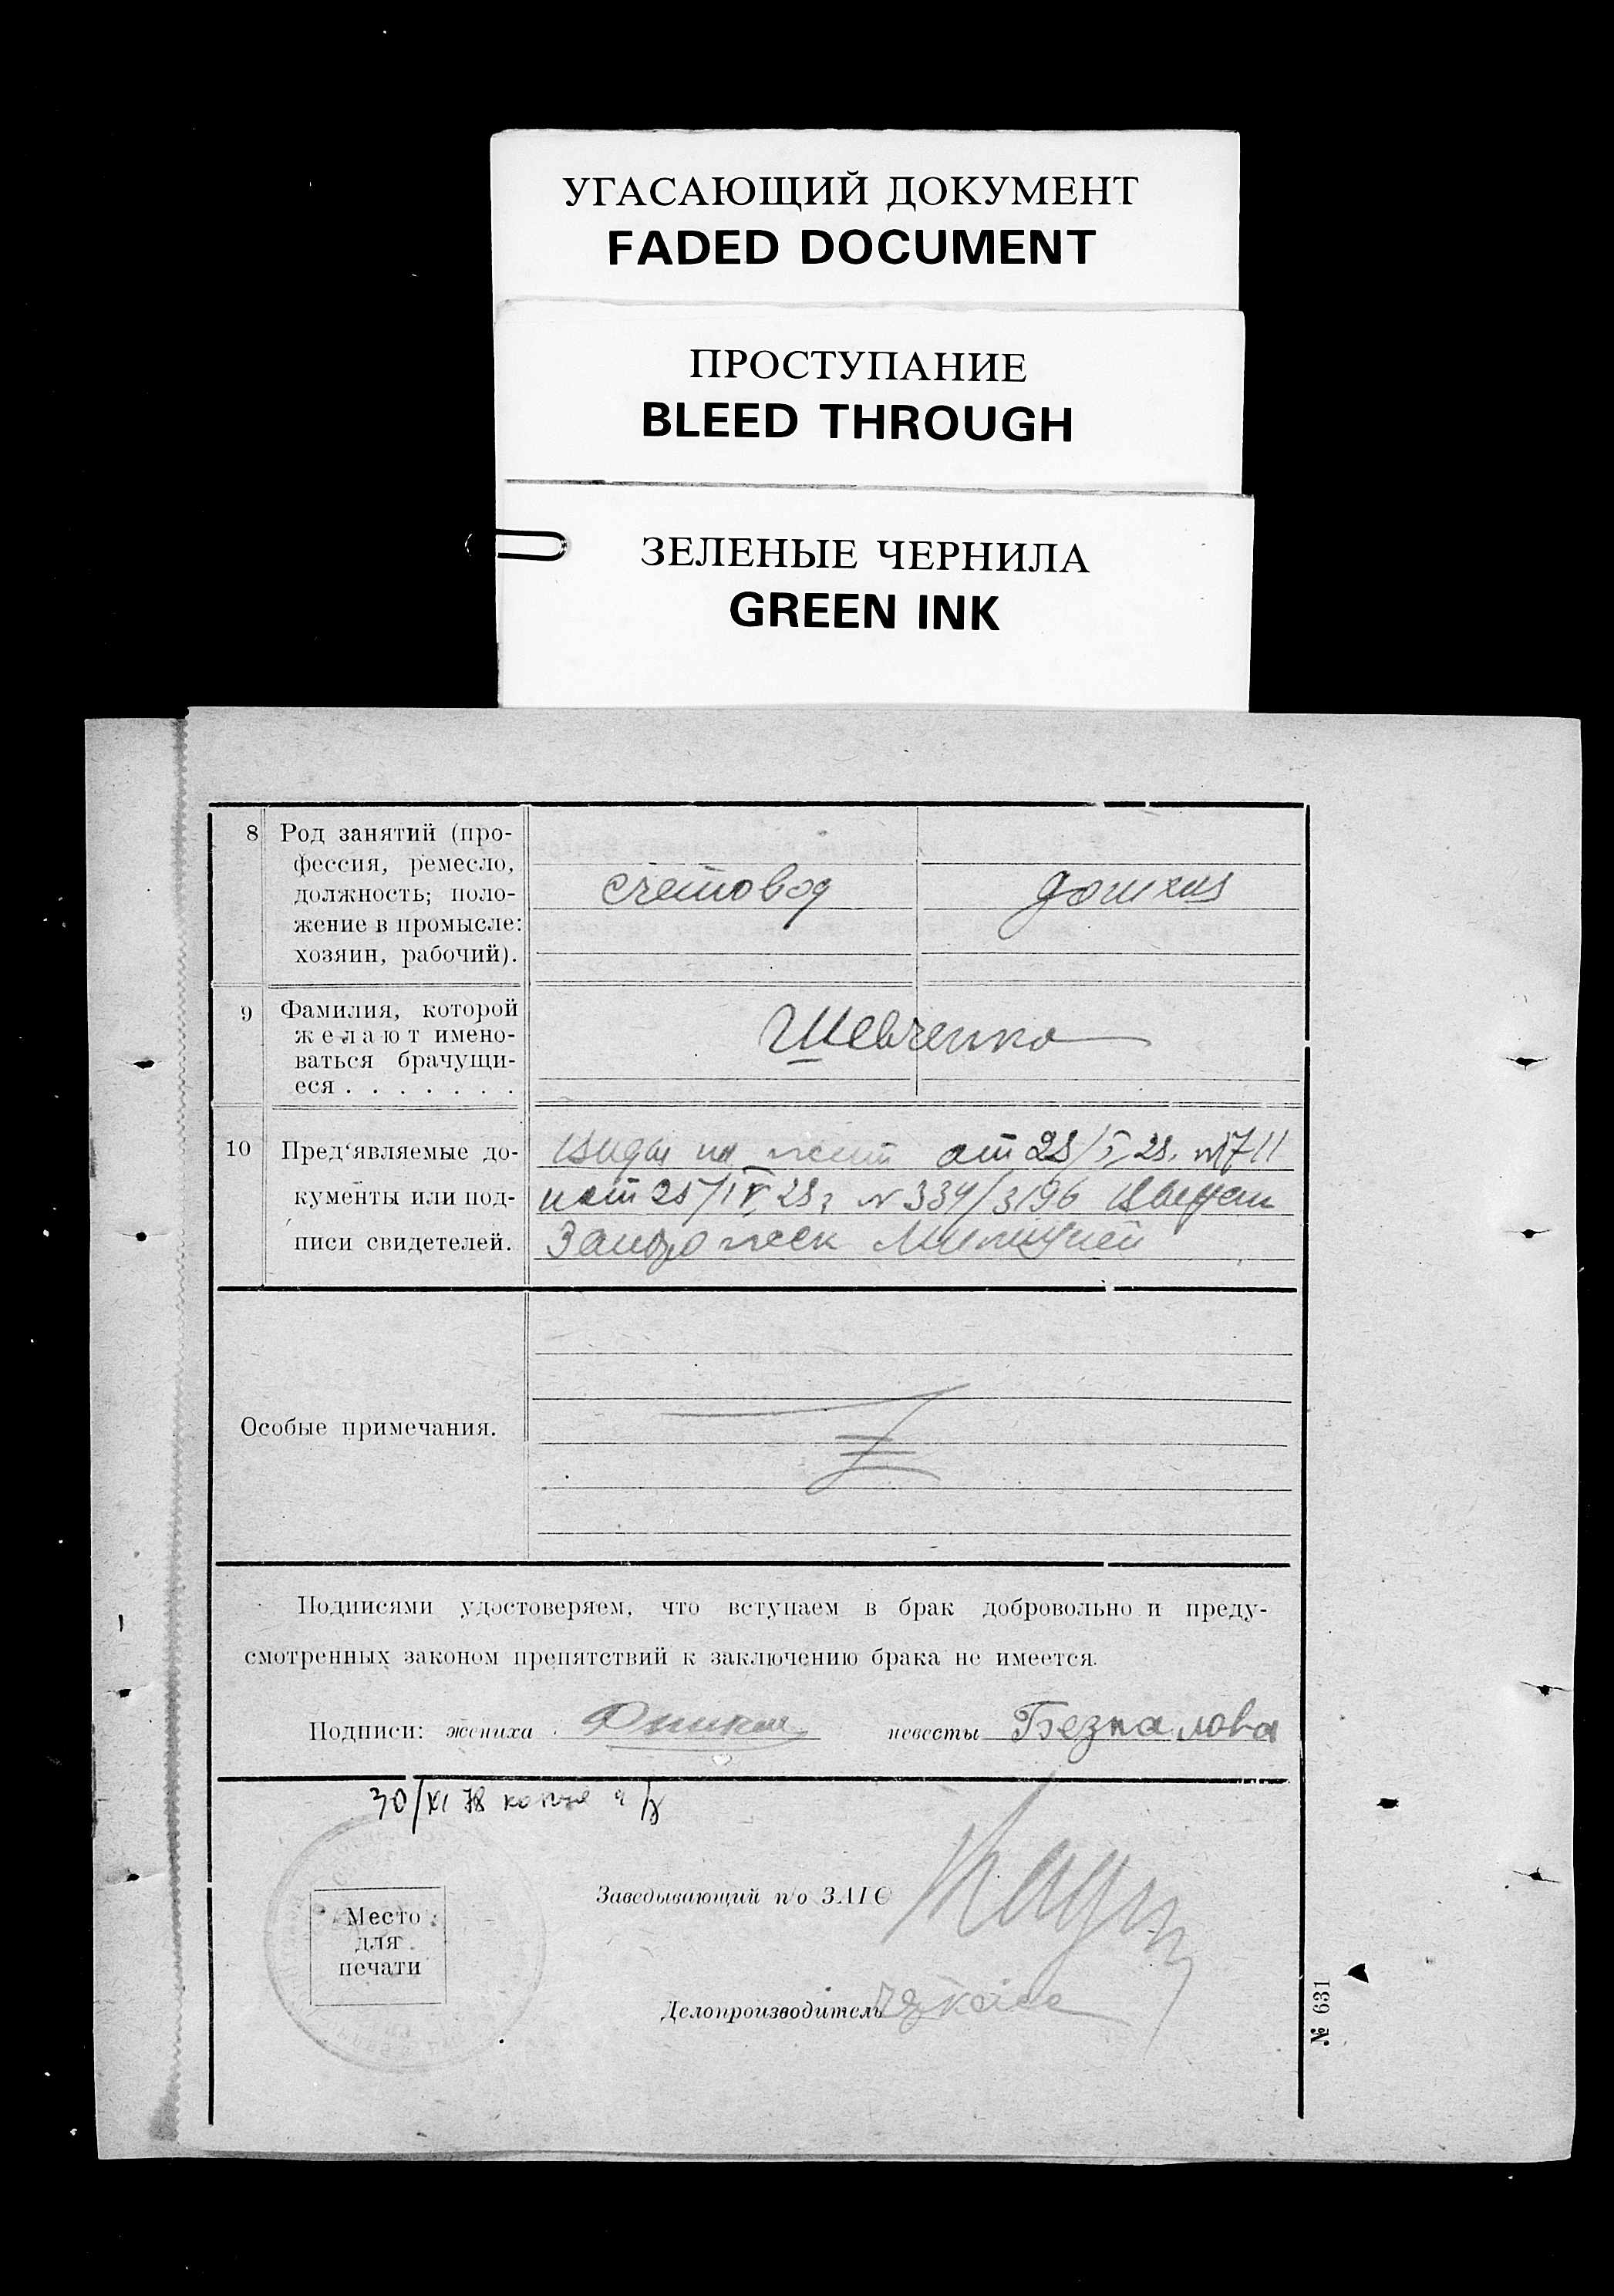 УГАСАЮЩИЙ ДОКУМЕНТ
FADED DOCUMENT
ПРОСТУПАНИЕ
BLEED THROUGH
ЗЕЛЕНЫЕ ЧЕРНИЛА
GREEN INK
8 Род занятий (про-
фессия, ремесло,
должность; поло-
жение в промысле:
хозяин, рабочий).
счетовод
домхоз
9 Фамилия, которой
желают имено-
ваться брачущи-
еся . . . . . . .
Шевченко
10 Пред‘являемые до-
кументы или под-
писи свидетелей.
виды на жит от 28/I, 28. №711
и от 25/IV, 28г №334/3196
Милицией
Особые примечания.
Подписями удостоверяем, что вступаем в брак добровольно и преду-
смотренных законом препятствий к заключению брака не имеется.
Подписи: жениха невесты Безпалова
30/XI 78
Место
для
печати
Заведывающий п/о ЗАГС
Делопроизводитель
№ 631